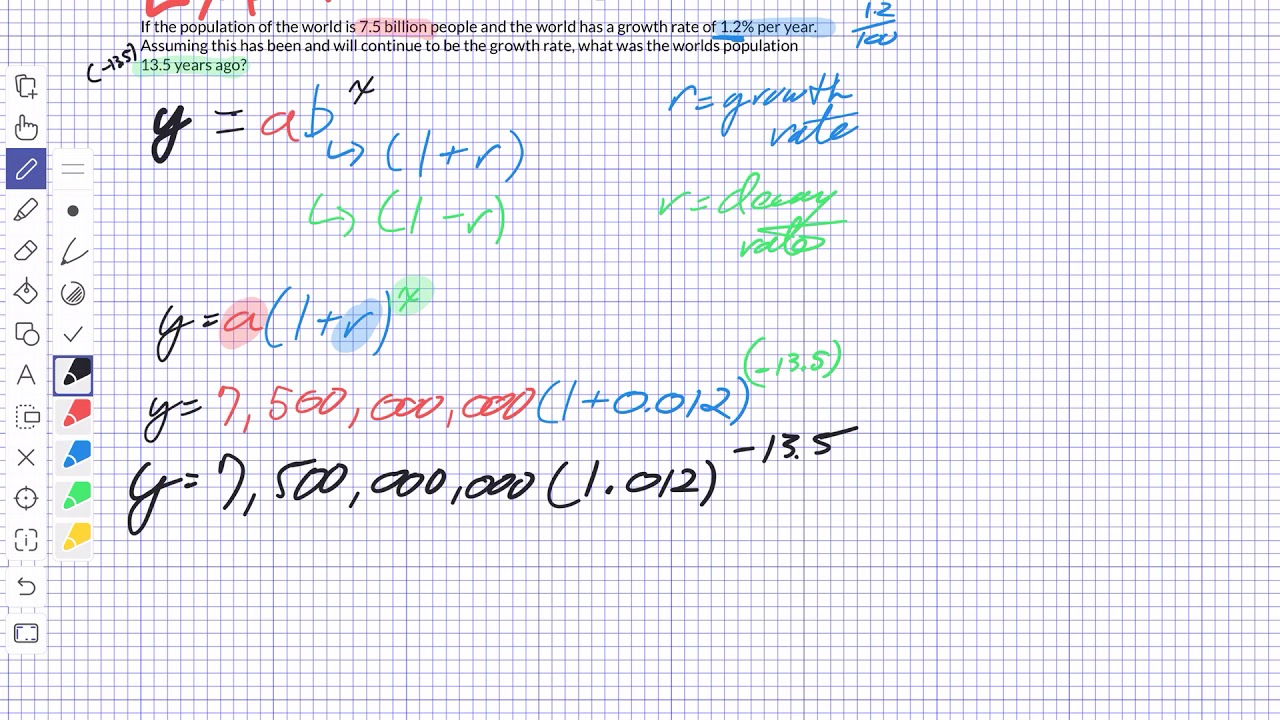 1.2
100
If the population of the world is 7.5 billion people and the world has a growth rate of 1.2% per year.
Assuming this has been and will continue to be the growth rate, what was the worlds population
(-13.5)
13.5 years ago?
y = ab^x
r = growth rate
↳ (1+r)
r = decay rate
↳ (1-r)
y = a(1+r)^x
y = 7,500,000,000(1+0.012)^(-13.5)
y = 7,500,000,000(1.012)^-13.5
A